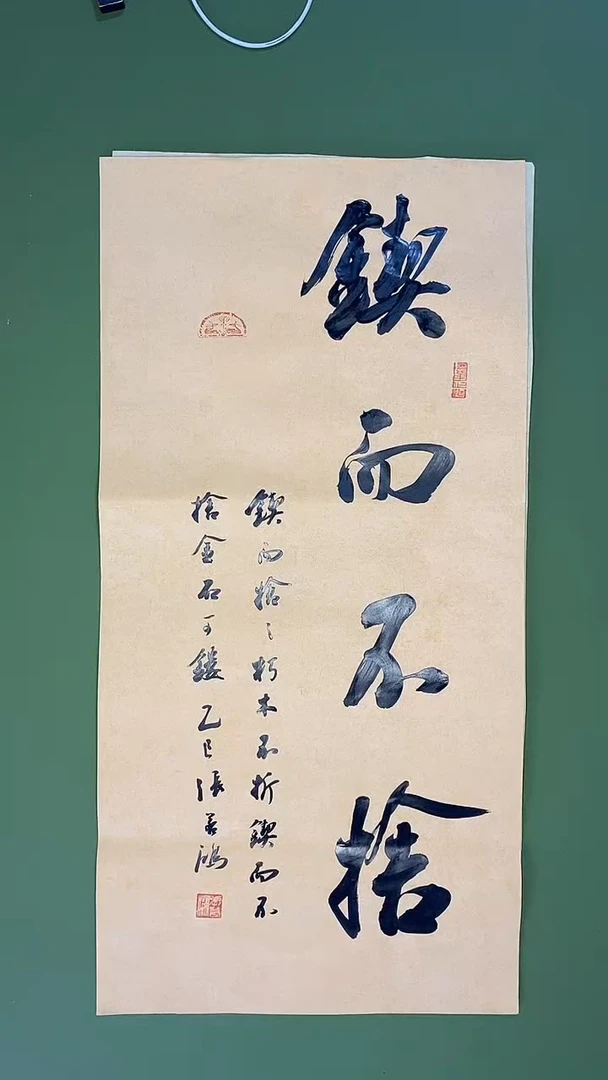 鍥而不捨
鍥而捨之朽木不折鍥而不
捨金石可鏤乙巳張